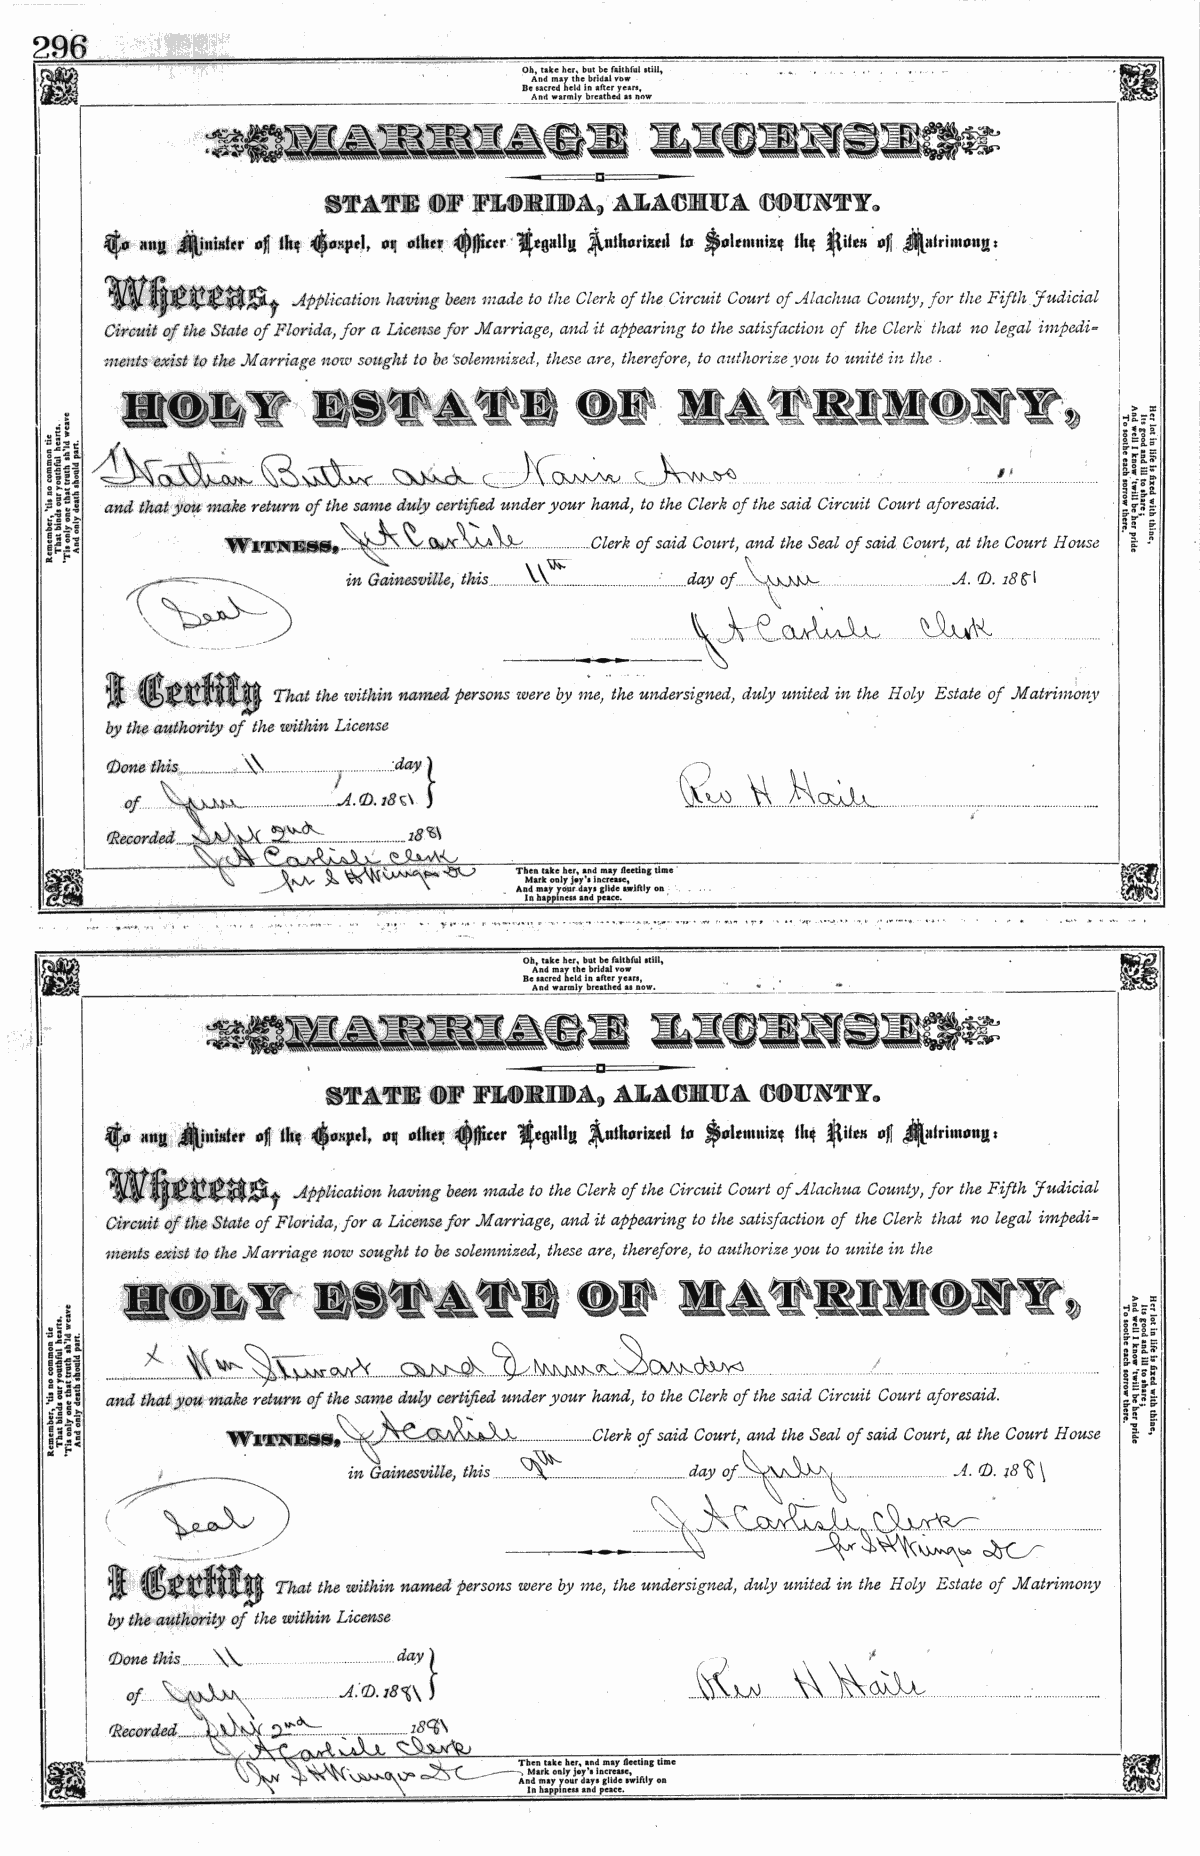 296
Oh, take her, but be faithful still,
And may the bridal vow
Be sacred held in after years,
And warmly breathed as now
MARRIAGE LICENSE
STATE OF FLORIDA, ALACHUA COUNTY.
To any Minister of the Gospel, or other Officer Legally Authorized to Solemnize the Rites of Matrimony:
Whereas, Application having been made to the Clerk of the Circuit Court of Alachua County, for the Fifth Judicial
Circuit of the State of Florida, for a License for Marriage, and it appearing to the satisfaction of the Clerk that no legal impedi=
ments exist to the Marriage now sought to be solemnized, these are, therefore, to authorize you to unite in the
HOLY ESTATE OF MATRIMONY,
Nathan Butler and Amos
and that you make return of the same duly certified under your hand, to the Clerk of the said Circuit Court aforesaid.
WITNESS, J A Carlisle Clerk of said Court, and the Seal of said Court, at the Court House
in Gainesville, this 11th day of June A. D. 1881
Seal
J A Carlisle Clerk
I Certify That the within named persons were by me, the undersigned, duly united in the Holy Estate of Matrimony
by the authority of the within License
Done this 11 day
of June A. D. 1881
Rev H Haile
Recorded Sept 2nd 1881
J A Carlisle Clerk
pr S H Wienges DC
Then take her, and may fleeting time
Mark only joy's increase,
And may your days glide swiftly on
In happiness and peace.
Remember, 'tis no common tie
That binds our youthful hearts,
'Tis only one that truth sh'ld weave
And only death should part.
Her lot in life is fixed with thine,
Its good and ill to share;
And well I know 'twill be her pride
To soothe each sorrow there.
Oh, take her, but be faithful still,
And may the bridal vow
Be sacred held in after years,
And warmly breathed as now.
MARRIAGE LICENSE
STATE OF FLORIDA, ALACHUA COUNTY.
To any Minister of the Gospel, or other Officer Legally Authorized to Solemnize the Rites of Matrimony:
Whereas, Application having been made to the Clerk of the Circuit Court of Alachua County, for the Fifth Judicial
Circuit of the State of Florida, for a License for Marriage, and it appearing to the satisfaction of the Clerk that no legal impedi=
ments exist to the Marriage now sought to be solemnized, these are, therefore, to authorize you to unite in the
HOLY ESTATE OF MATRIMONY,
x Wm Stewart and Emma Sanders
and that you make return of the same duly certified under your hand, to the Clerk of the said Circuit Court aforesaid.
WITNESS, J A Carlisle Clerk of said Court, and the Seal of said Court, at the Court House
in Gainesville, this 9th day of July A. D. 1881
Seal
J A Carlisle Clerk
pr S H Wienges DC
I Certify That the within named persons were by me, the undersigned, duly united in the Holy Estate of Matrimony
by the authority of the within License
Done this 11 day
of July A. D. 1881
Rev H Haile
Recorded Sept 2nd 1881
J A Carlisle Clerk
pr S H Wienges DC
Then take her, and may fleeting time
Mark only joy's increase,
And may your days glide swiftly on
In happiness and peace.
Remember, 'tis no common tie
That binds our youthful hearts,
'Tis only one that truth sh'ld weave
And only death should part.
Her lot in life is fixed with thine,
Its good and ill to share;
And well I know 'twill be her pride
To soothe each sorrow there.